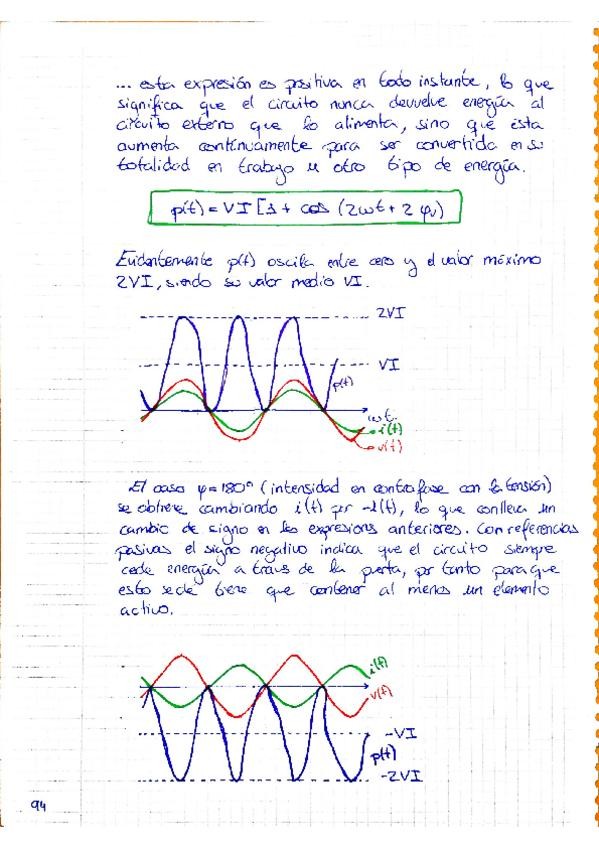 ... esta expresión es positiva en todo instante, lo que
significa que el circuito nunca devuelve energía al
circuito externo que lo alimenta, sino que ésta
aumenta contínuamente para ser convertida en su
totalidad en trabajo u otro tipo de energía.
p(t) = VI [1 + cos (2ωt + 2φv)
Evidentemente p(t) oscila entre cero y el valor máximo
2VI, siendo su valor medio VI.
2VI
VI
p(t)
ωt
i(t)
v(t)
El caso φ=180° (intensidad en contrafase con la tensión)
se obtiene cambiando i(t) por -i(t), lo que conlleva un
cambio de signo en las expresiones anteriores. Con referencias
pasivas el signo negativo indica que el circuito siempre
cede energía a través de la puerta, por tanto para que
esto se dé tiene que contener al menos un elemento
activo.
i(t)
v(t)
-VI
p(t)
-2VI
94